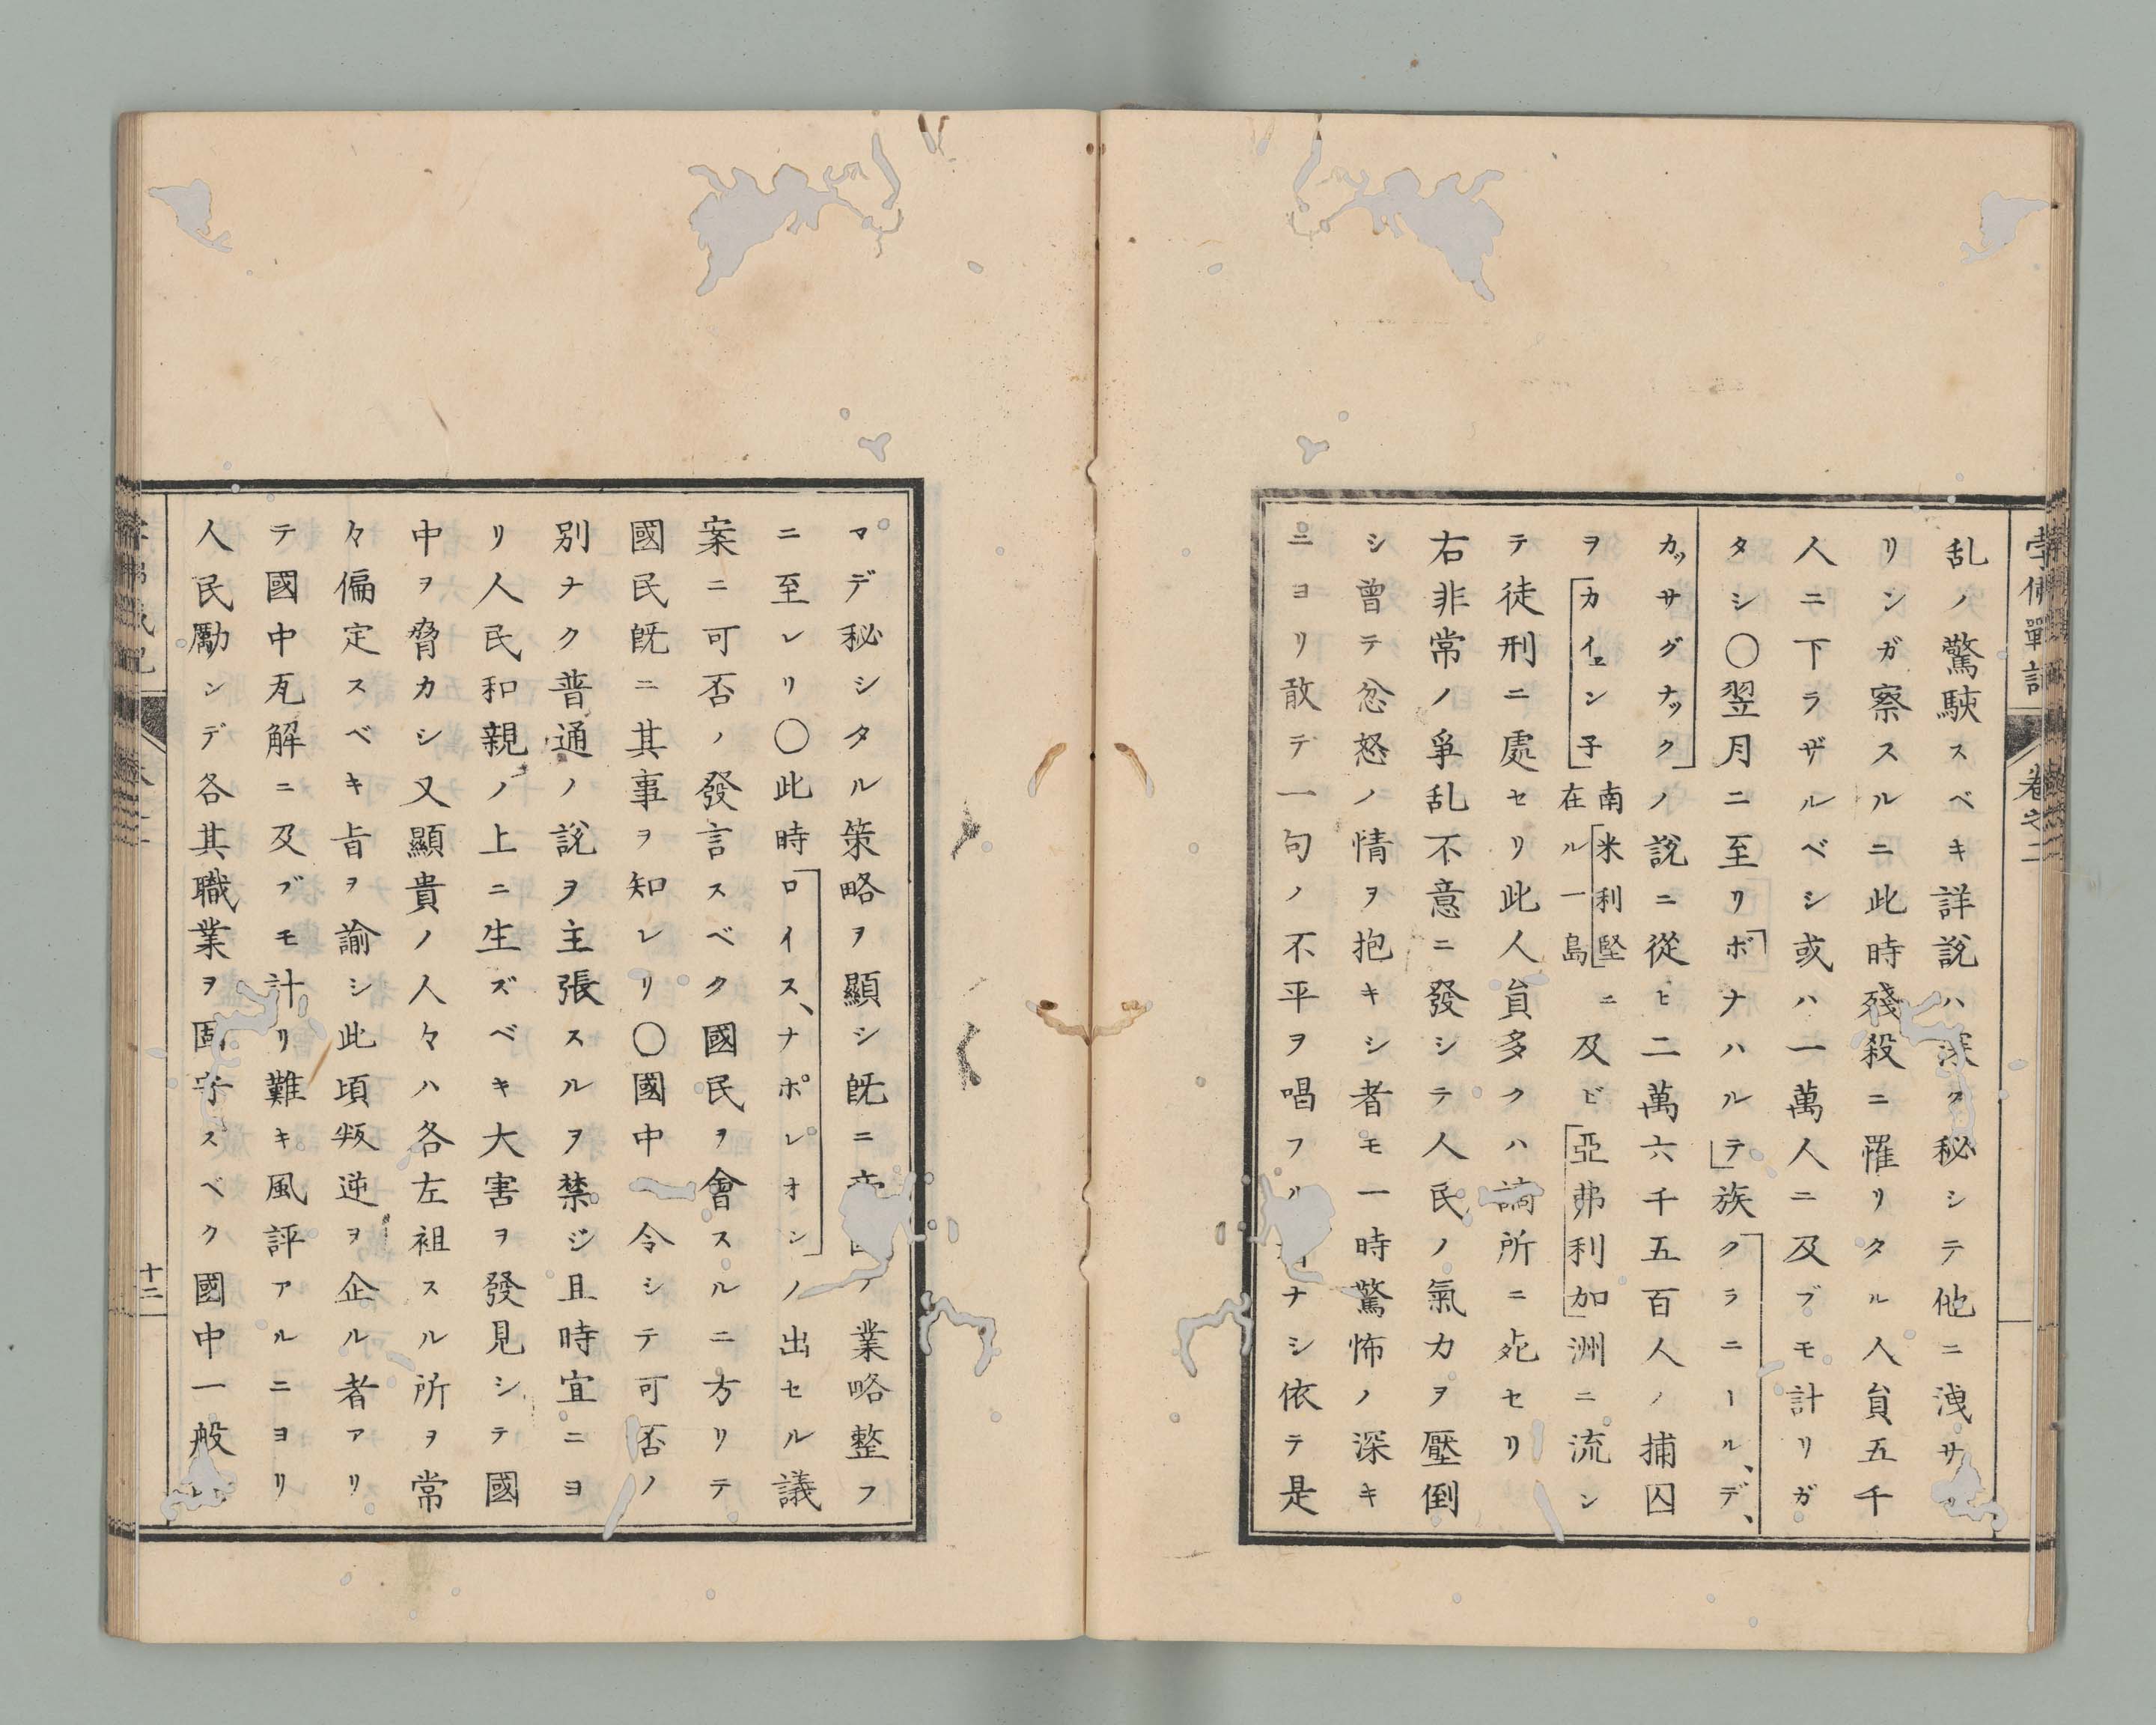 孛佛戰記
卷之二
乱ノ驚駭スベキ詳說ハ深ク秘シテ他ニ洩サ
リシガ察スルニ此時殘殺ニ罹リタル人員五千
人ニ下ラザルベシ或ハ一萬人ニ及ブモ計リガ
タシ〇翌月ニ至リ「ボナハルテ」族「クラニール、デ、
カッサグナック」ノ說ニ從ヒ二萬六千五百人ノ捕囚
ヲ「カイエン子」南「米利堅」ニ在ル一島及ビ「亞弗利加」洲ニ流シ
テ徒刑ニ處セリ此人員多クハ謫所ニ死セリ
右非常ノ爭乱不意ニ發シテ人民ノ氣力ヲ壓倒
シ曾テ忿怒ノ情ヲ抱キシ者モ一時驚怖ノ深キ
ニヨリ敢テ一句ノ不平ヲ唱フルナシ依テ是
マデ秘シタル策略ヲ顯シ既ニ業略整フ
ニ至レリ〇此時「ロイス、ナポレオン」ノ出セル議
案ニ可否ノ發言スベク國民ヲ會スルニ方リテ
國民既ニ其事ヲ知レリ〇國中令シテ可否ノ
別ナク普通ノ說ヲ主張スルヲ禁ジ且時宜ニヨ
リ人民和親ノ上ニ生ズベキ大害ヲ發見シテ國
中ヲ脅カシ又顯貴ノ人々ハ各左袒スル所ヲ常
々偏定スベキ旨ヲ諭シ此頃叛逆ヲ企ル者アリ
テ國中瓦解ニ及ブモ計リ難キ風評アルニヨリ
人民勵ンデ各其職業ヲ固守スベク國中一般
十二